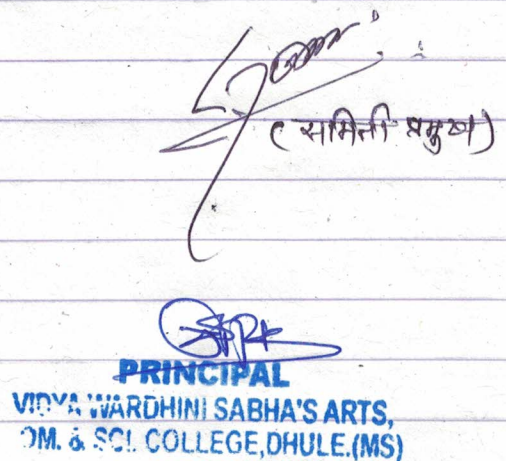 ( समिती प्रमुख )
PRINCIPAL
VIDYA WARDHINI SABHA'S ARTS,
OM. & SCI. COLLEGE,DHULE.(MS)